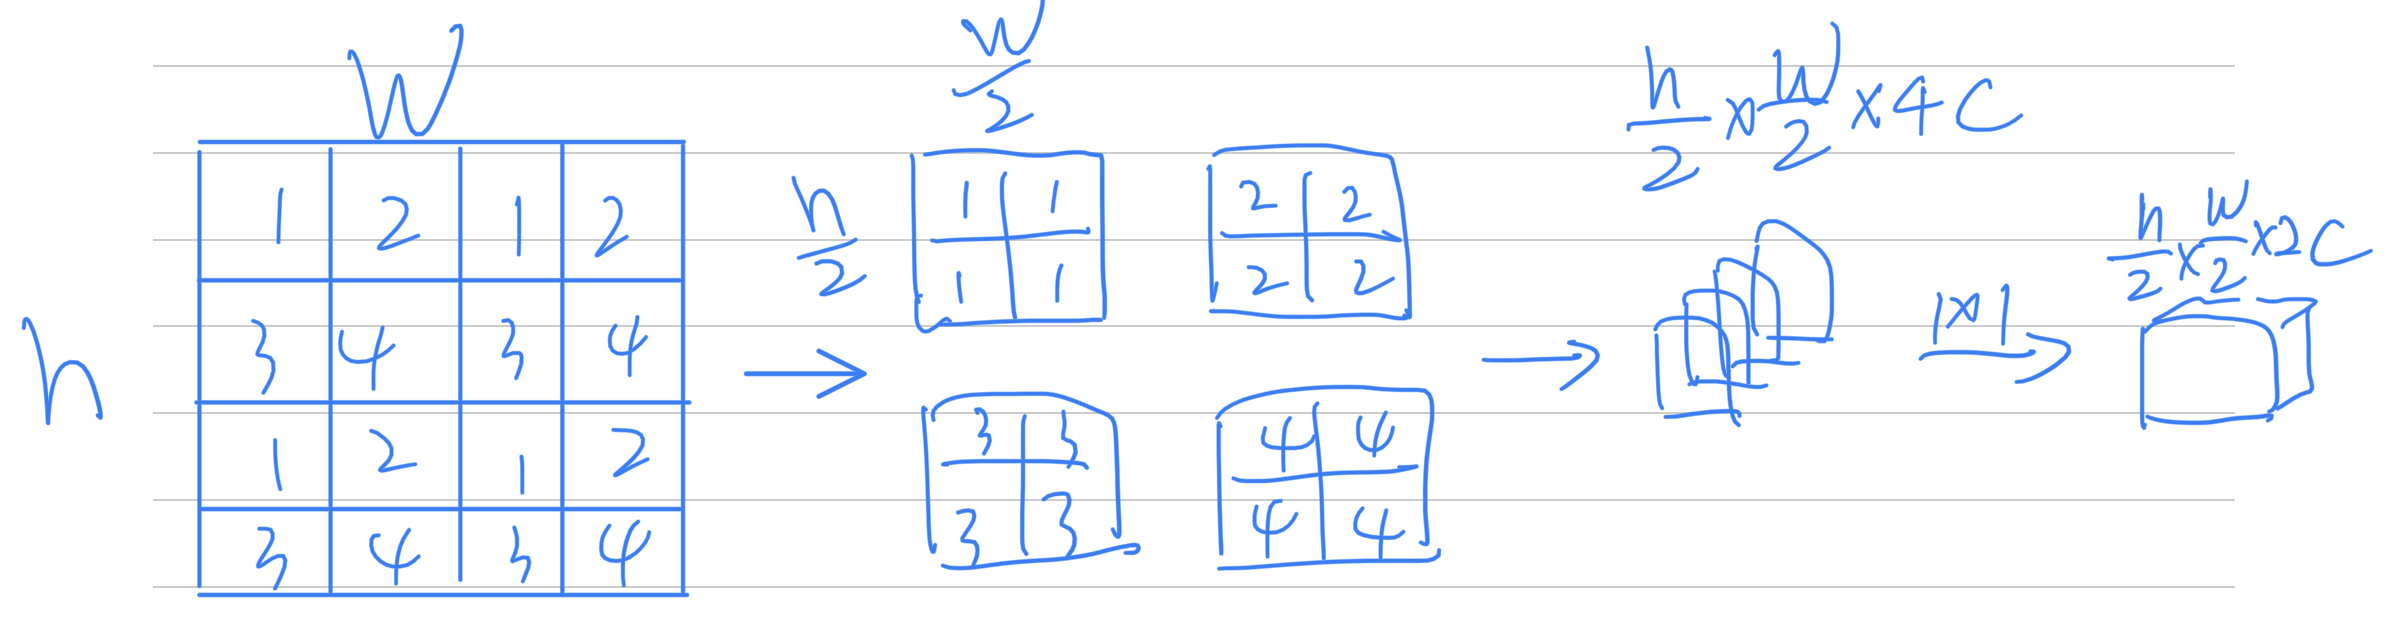 W
h
1 2 1 2
3 4 3 4
1 2 1 2
3 4 3 4
W/2
h/2
1 1
1 1
2 2
2 2
3 3
3 3
4 4
4 4
h/2 × W/2 × 4C
1×1
h/2 × W/2 × 2C